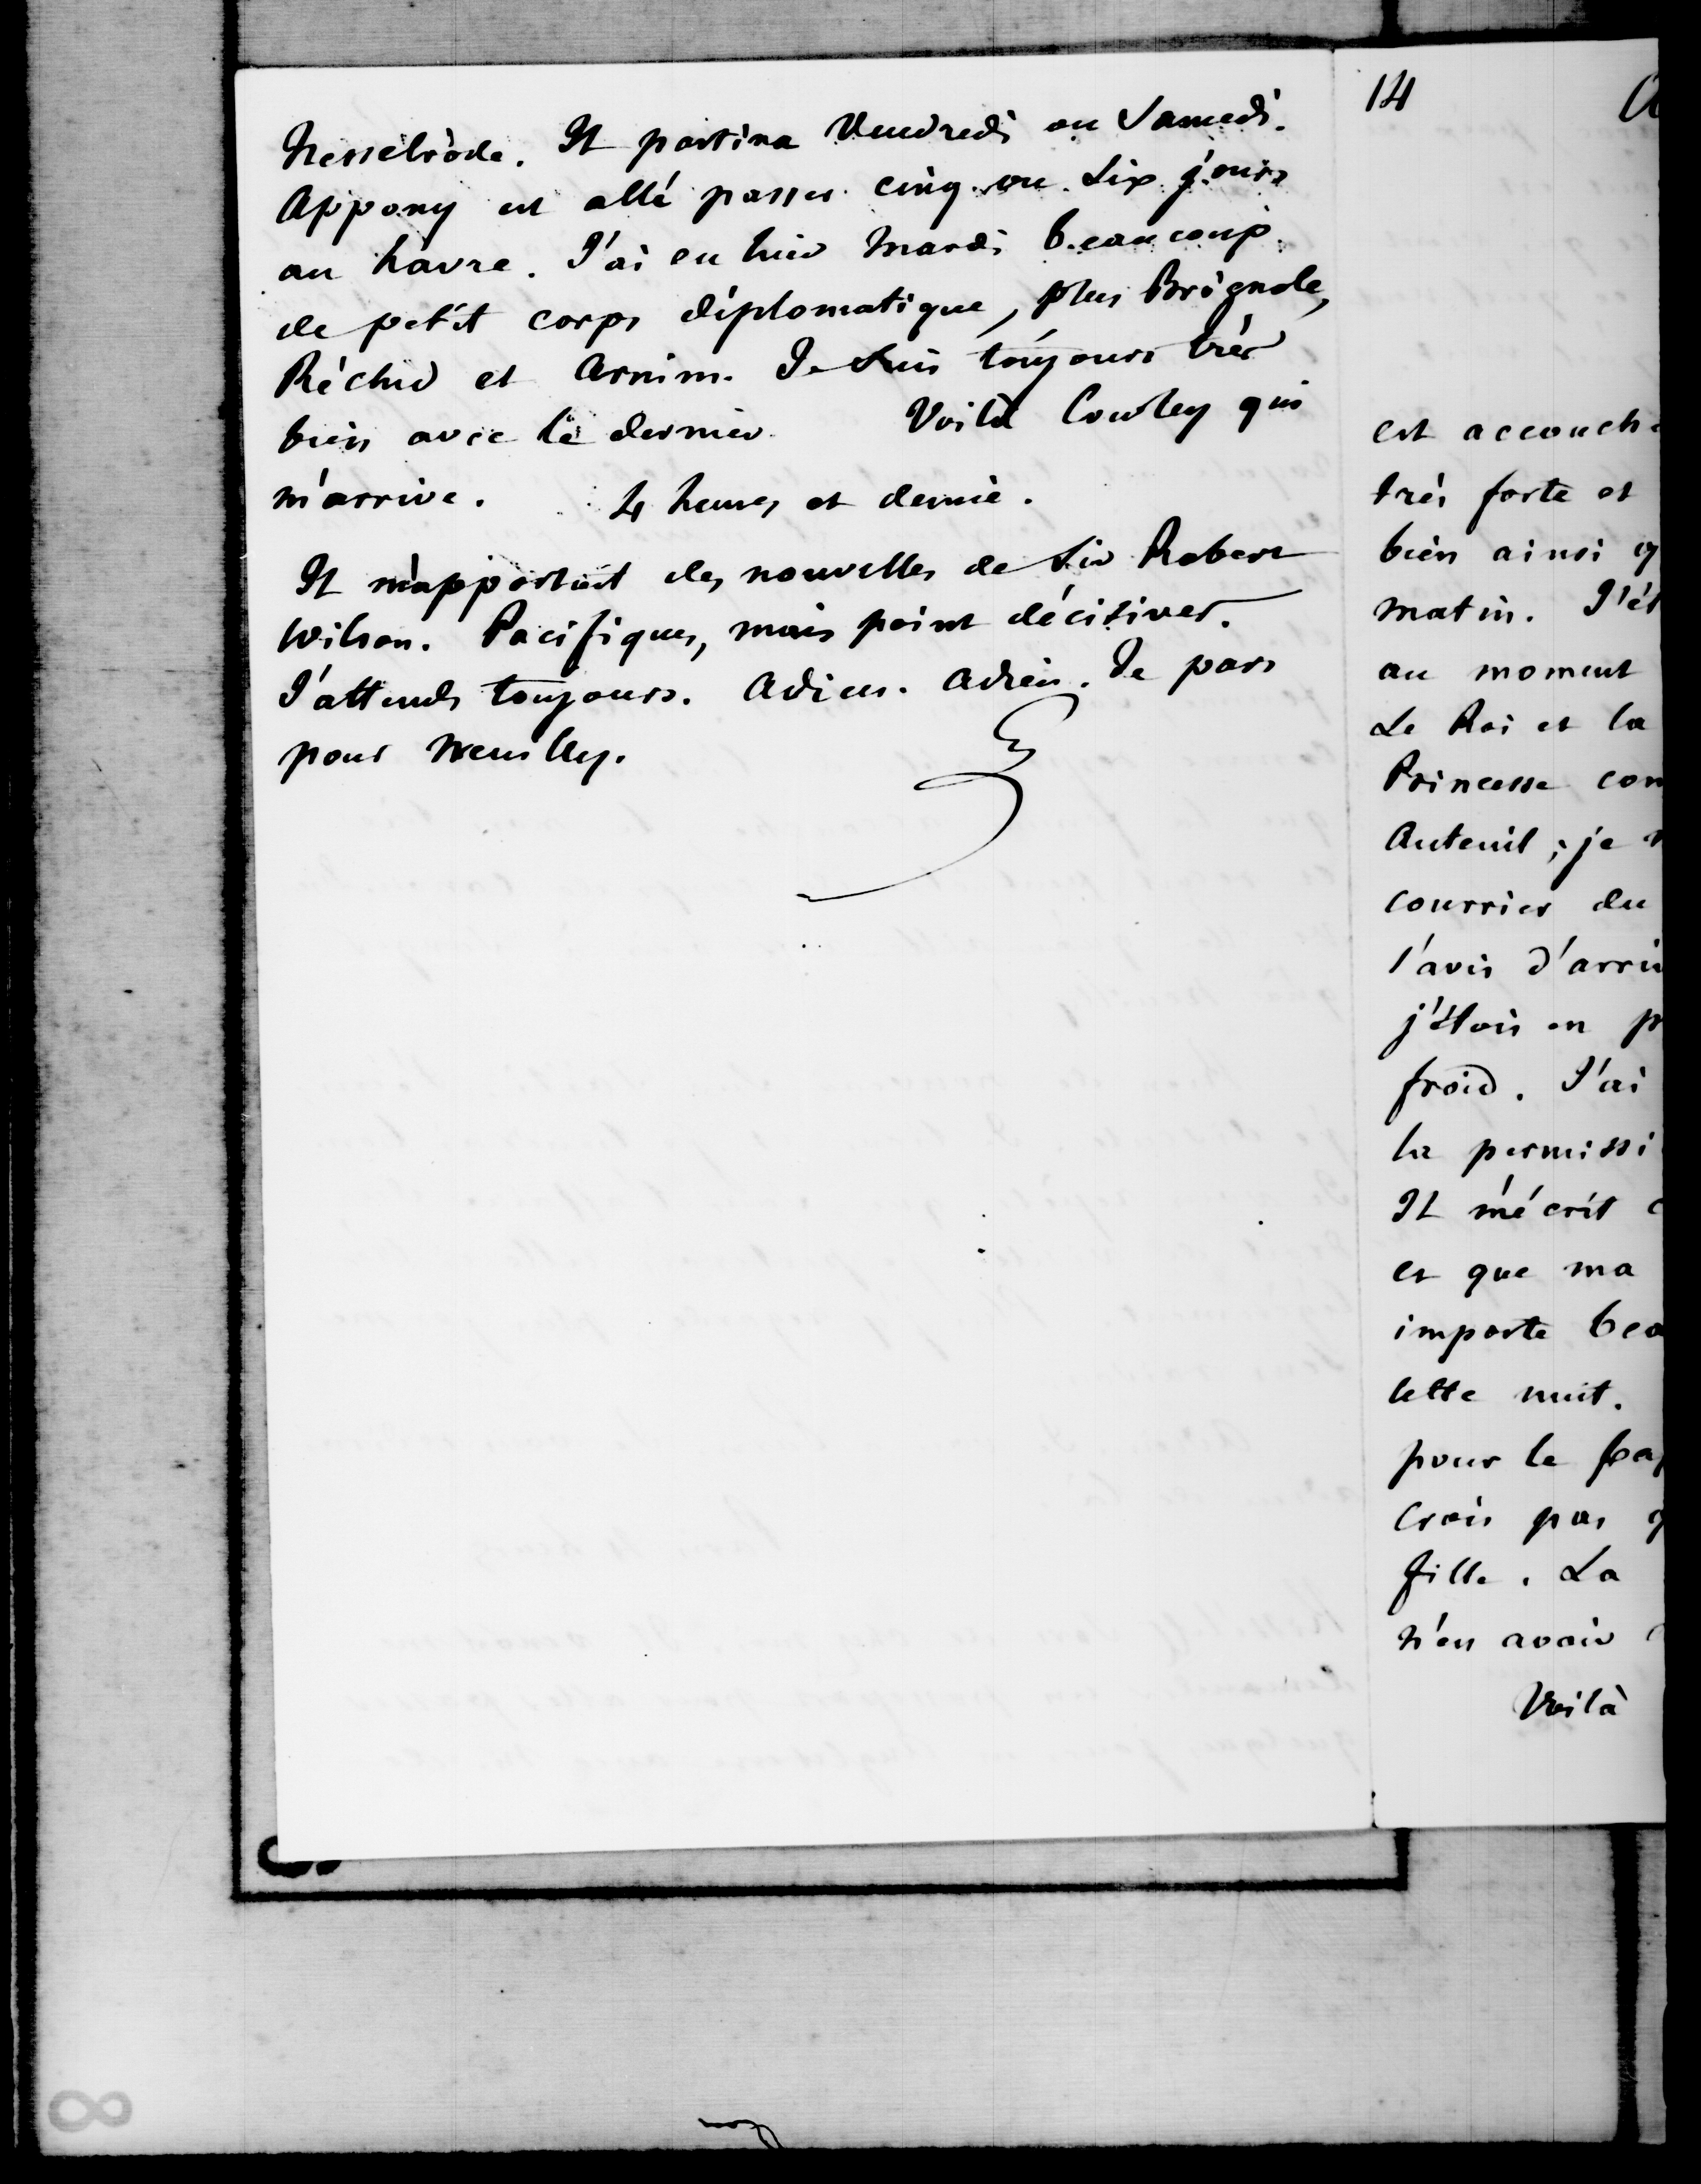 Nesselrode. Il partira Vendredi ou Samedi.
Appony est allé passer cinq ou six jours
au havre. J'ai eu hier Mardi beaucoup
de petit corps diplomatique, plus Brignole,
Réchid et Arnim. Je suis toujours très
bien avec le dernier. Voilà Cowley qui
m'arrive. 4 heures et demie.
Il m'apportait des nouvelles de Sir Robert
Wilson. Pacifiques, mais point décisives.
J'attends toujours. Adieu. Adieu. Je pars
pour Neuilly.
14
est accouch
très forte et
bien ainsi q
matin. J'ét
au moment
Le Roi et la
Princesse con
Auteuil ; je
courrier du
l'avis d'arri
j'étois en p
froid. J'ai
la permissi
Il m'écrit
et que ma
importe bea
cette nuit.
pour le
crois pas q
fille. La
n'en avoir
Voilà